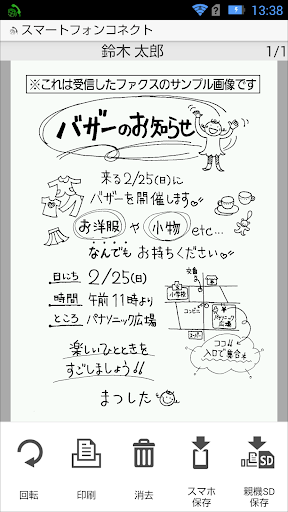 13:38
スマートフォンコネクト
鈴木 太郎
1/1
※これは受信したファクスのサンプル画像です
バザーのお知らせ
来る2/25(日)に
バザーを開催します
お洋服 や 小物 etc...
なんでも お持ちください
日にち 2/25(日)
時間 午前11時より
ところ パナソニック広場
交番
小学校
コンビニ
パナソニック
広場
ココ!!
入口で集合
楽しいひとときを
すごしましょう!!
まつした
回転
印刷
消去
スマホ
保存
親機SD
保存
SD